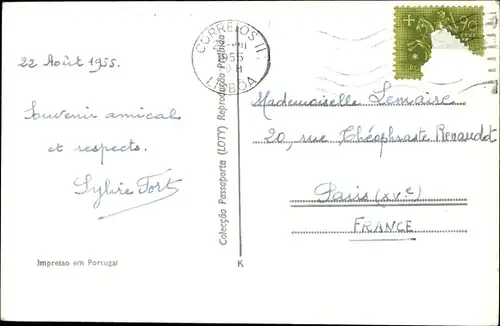 22 Août 1955.
Souvenir amical
et respects.
Sylvie Fort
Impresso em Portugal
Colecção Passaporte (LOTY) Reprodução Proibida
K
CORREIOS II
1955
LISBOA
Mademoiselle Lemaise
20, rue Théophraste Renaudot
Paris (XVe)
FRANCE